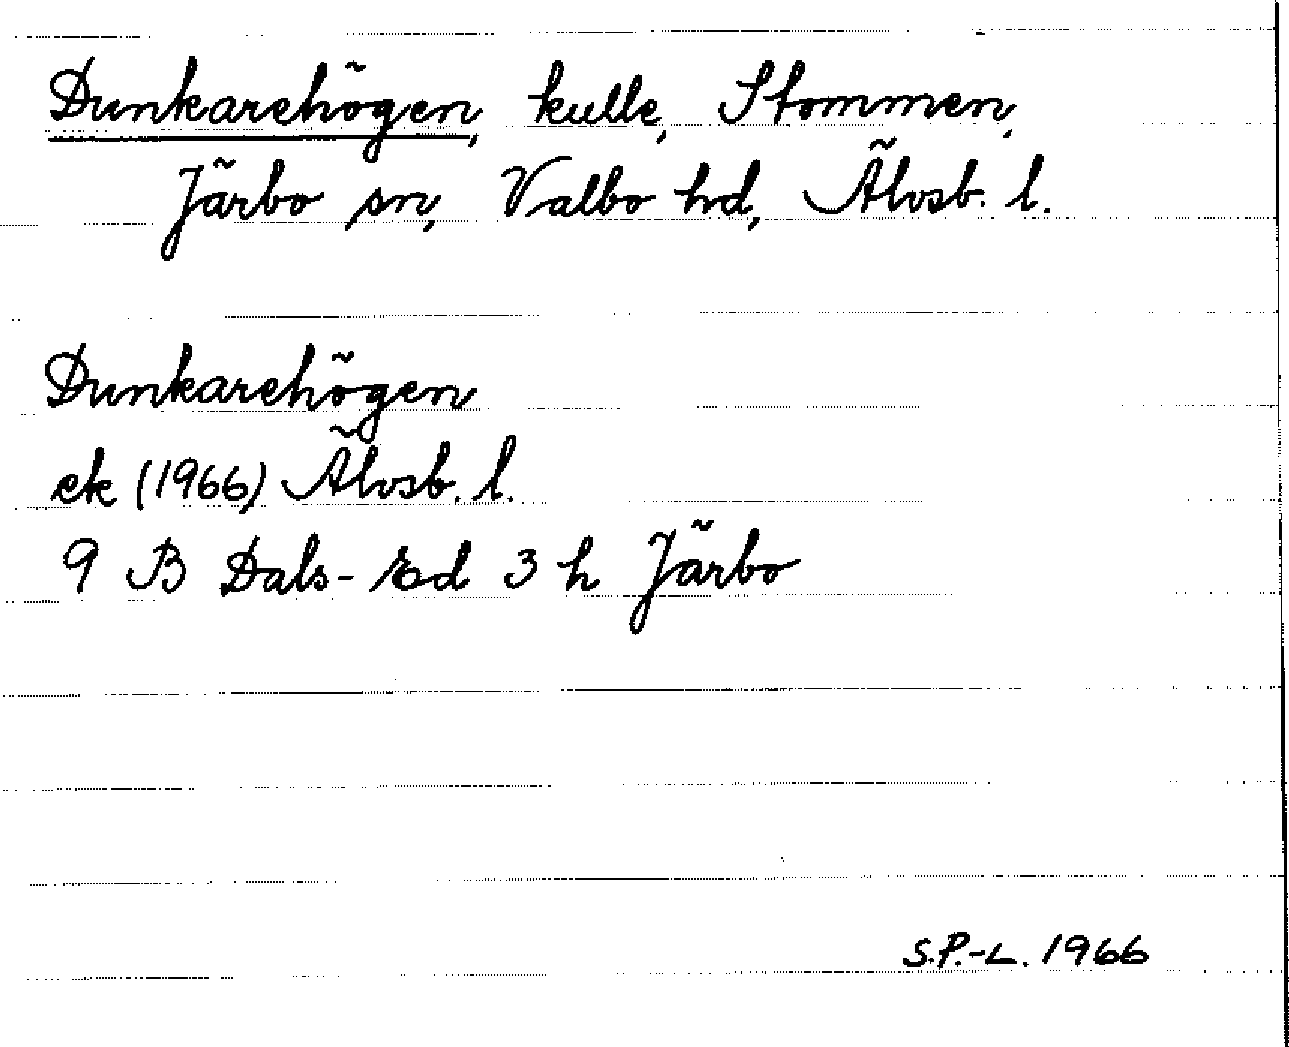 Dunkarehögen, kulle, Stommen,
Järbo sn, Valbo hd, Älvsb. l.
Dunkarehögen
ek (1966) Älvsb. l.
9 B Dals-Ed 3 h Järbo
S.P.-L. 1966